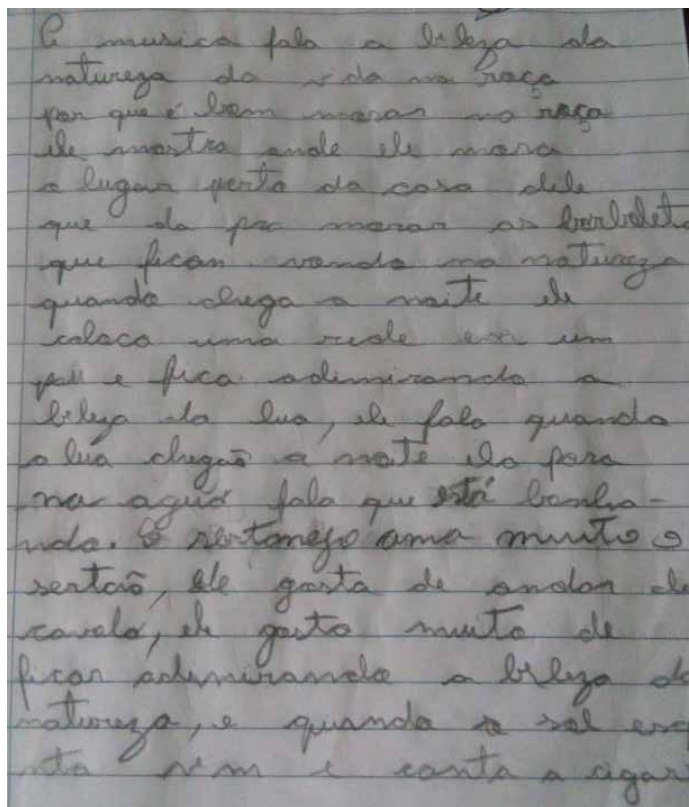 A musica fala a beleza da
natureza da vida na Roça
por que é bem morar na roça
ele mostra onde ele mora
o lugar perto da casa dele
que da pra morar as borboleta
que ficam voando na natureza
quando chega a noite ele
coloca uma rede em um
pau e fica adimirando a
beleza da lua, ele fala quando
a lua chegaõ a noite ela para
na agua fala que está banha-
nda. O sertanejo ama muito o
sertão, ele gosta de andar de
cavalo, ele gosta muito de
ficar adimirando a beleza da
natureza, e quando o sol esq
nta vem e canta a cigar